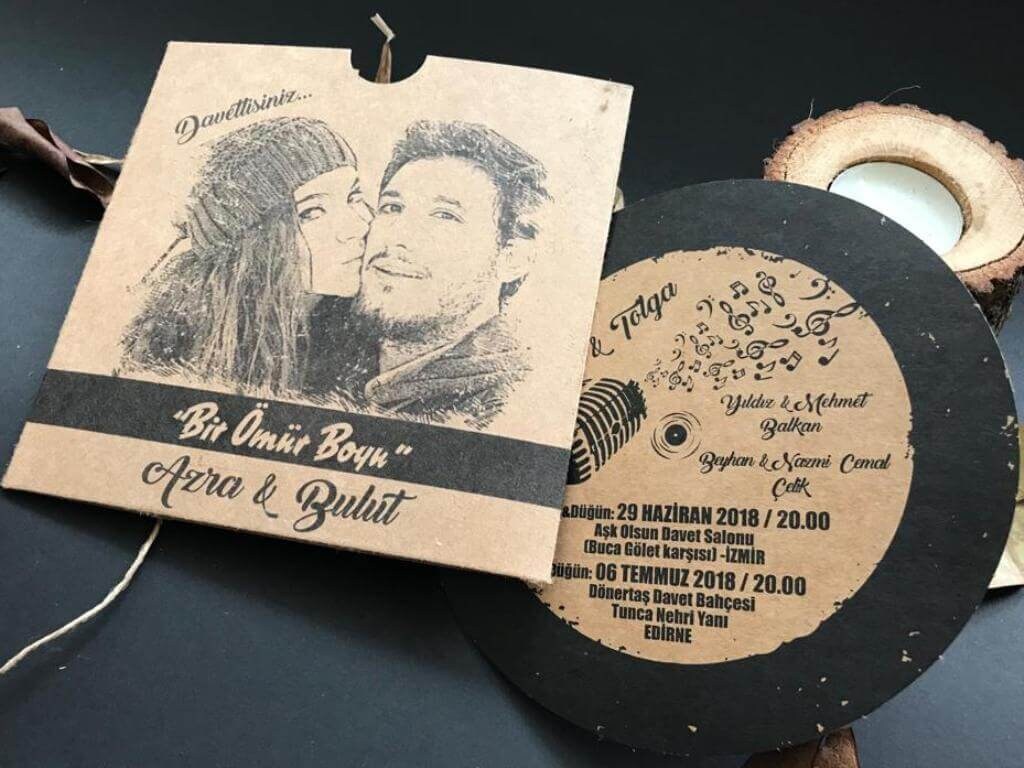 Davetlisiniz...
"Bir Ömür Boyu"
Azra & Bulut
& Tolga
Yıldız & Mehmet
Balkan
Beyhan & Nazmi Cemal
Çelik
&Düğün: 29 HAZİRAN 2018 / 20.00
Aşk Olsun Davet Salonu
(Buca Gölet karşısı) -İZMİR
Düğün: 06 TEMMUZ 2018 / 20.00
Dönertaş Davet Bahçesi
Tunca Nehri Yanı
EDİRNE